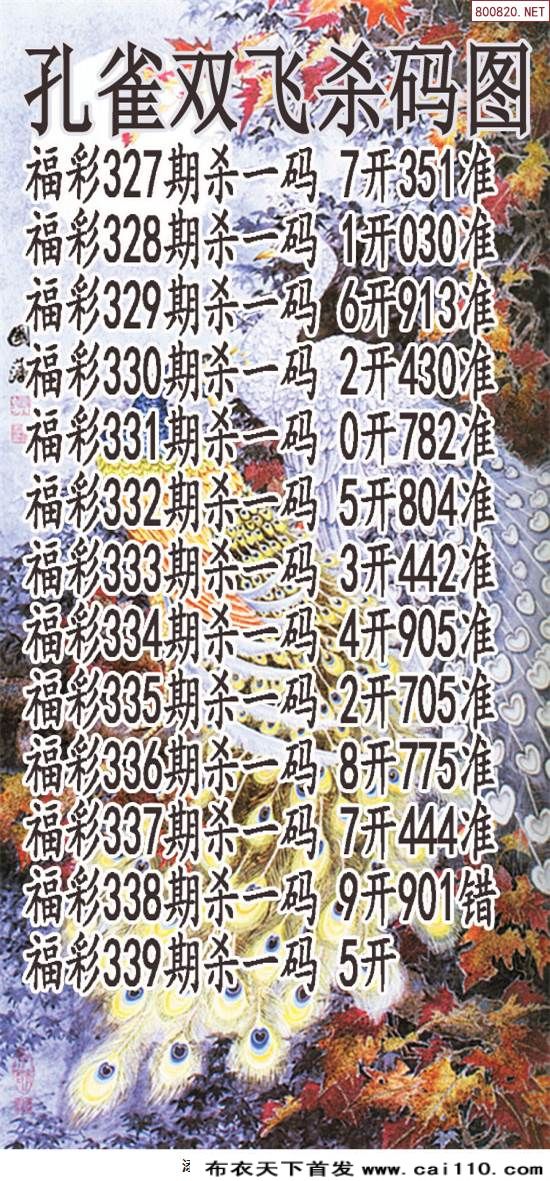 800820.NET
孔雀双飞杀码图
福彩327期杀一码 7开351准
福彩328期杀一码 1开030准
福彩329期杀一码 6开913准
福彩330期杀一码 2开430准
福彩331期杀一码 0开782准
福彩332期杀一码 5开804准
福彩333期杀一码 3开442准
福彩334期杀一码 4开905准
福彩335期杀一码 2开705准
福彩336期杀一码 8开775准
福彩337期杀一码 7开444准
福彩338期杀一码 9开901错
福彩339期杀一码 5开
布衣天下首发 www.cai110.com